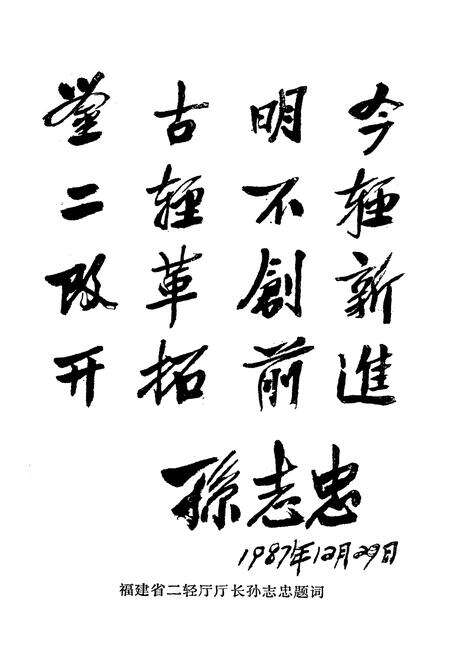 鉴古明今
二轻不轻
改革創新
开拓前進
孫志忠
1987年12月29日
福建省二轻厅厅长孙志忠题词